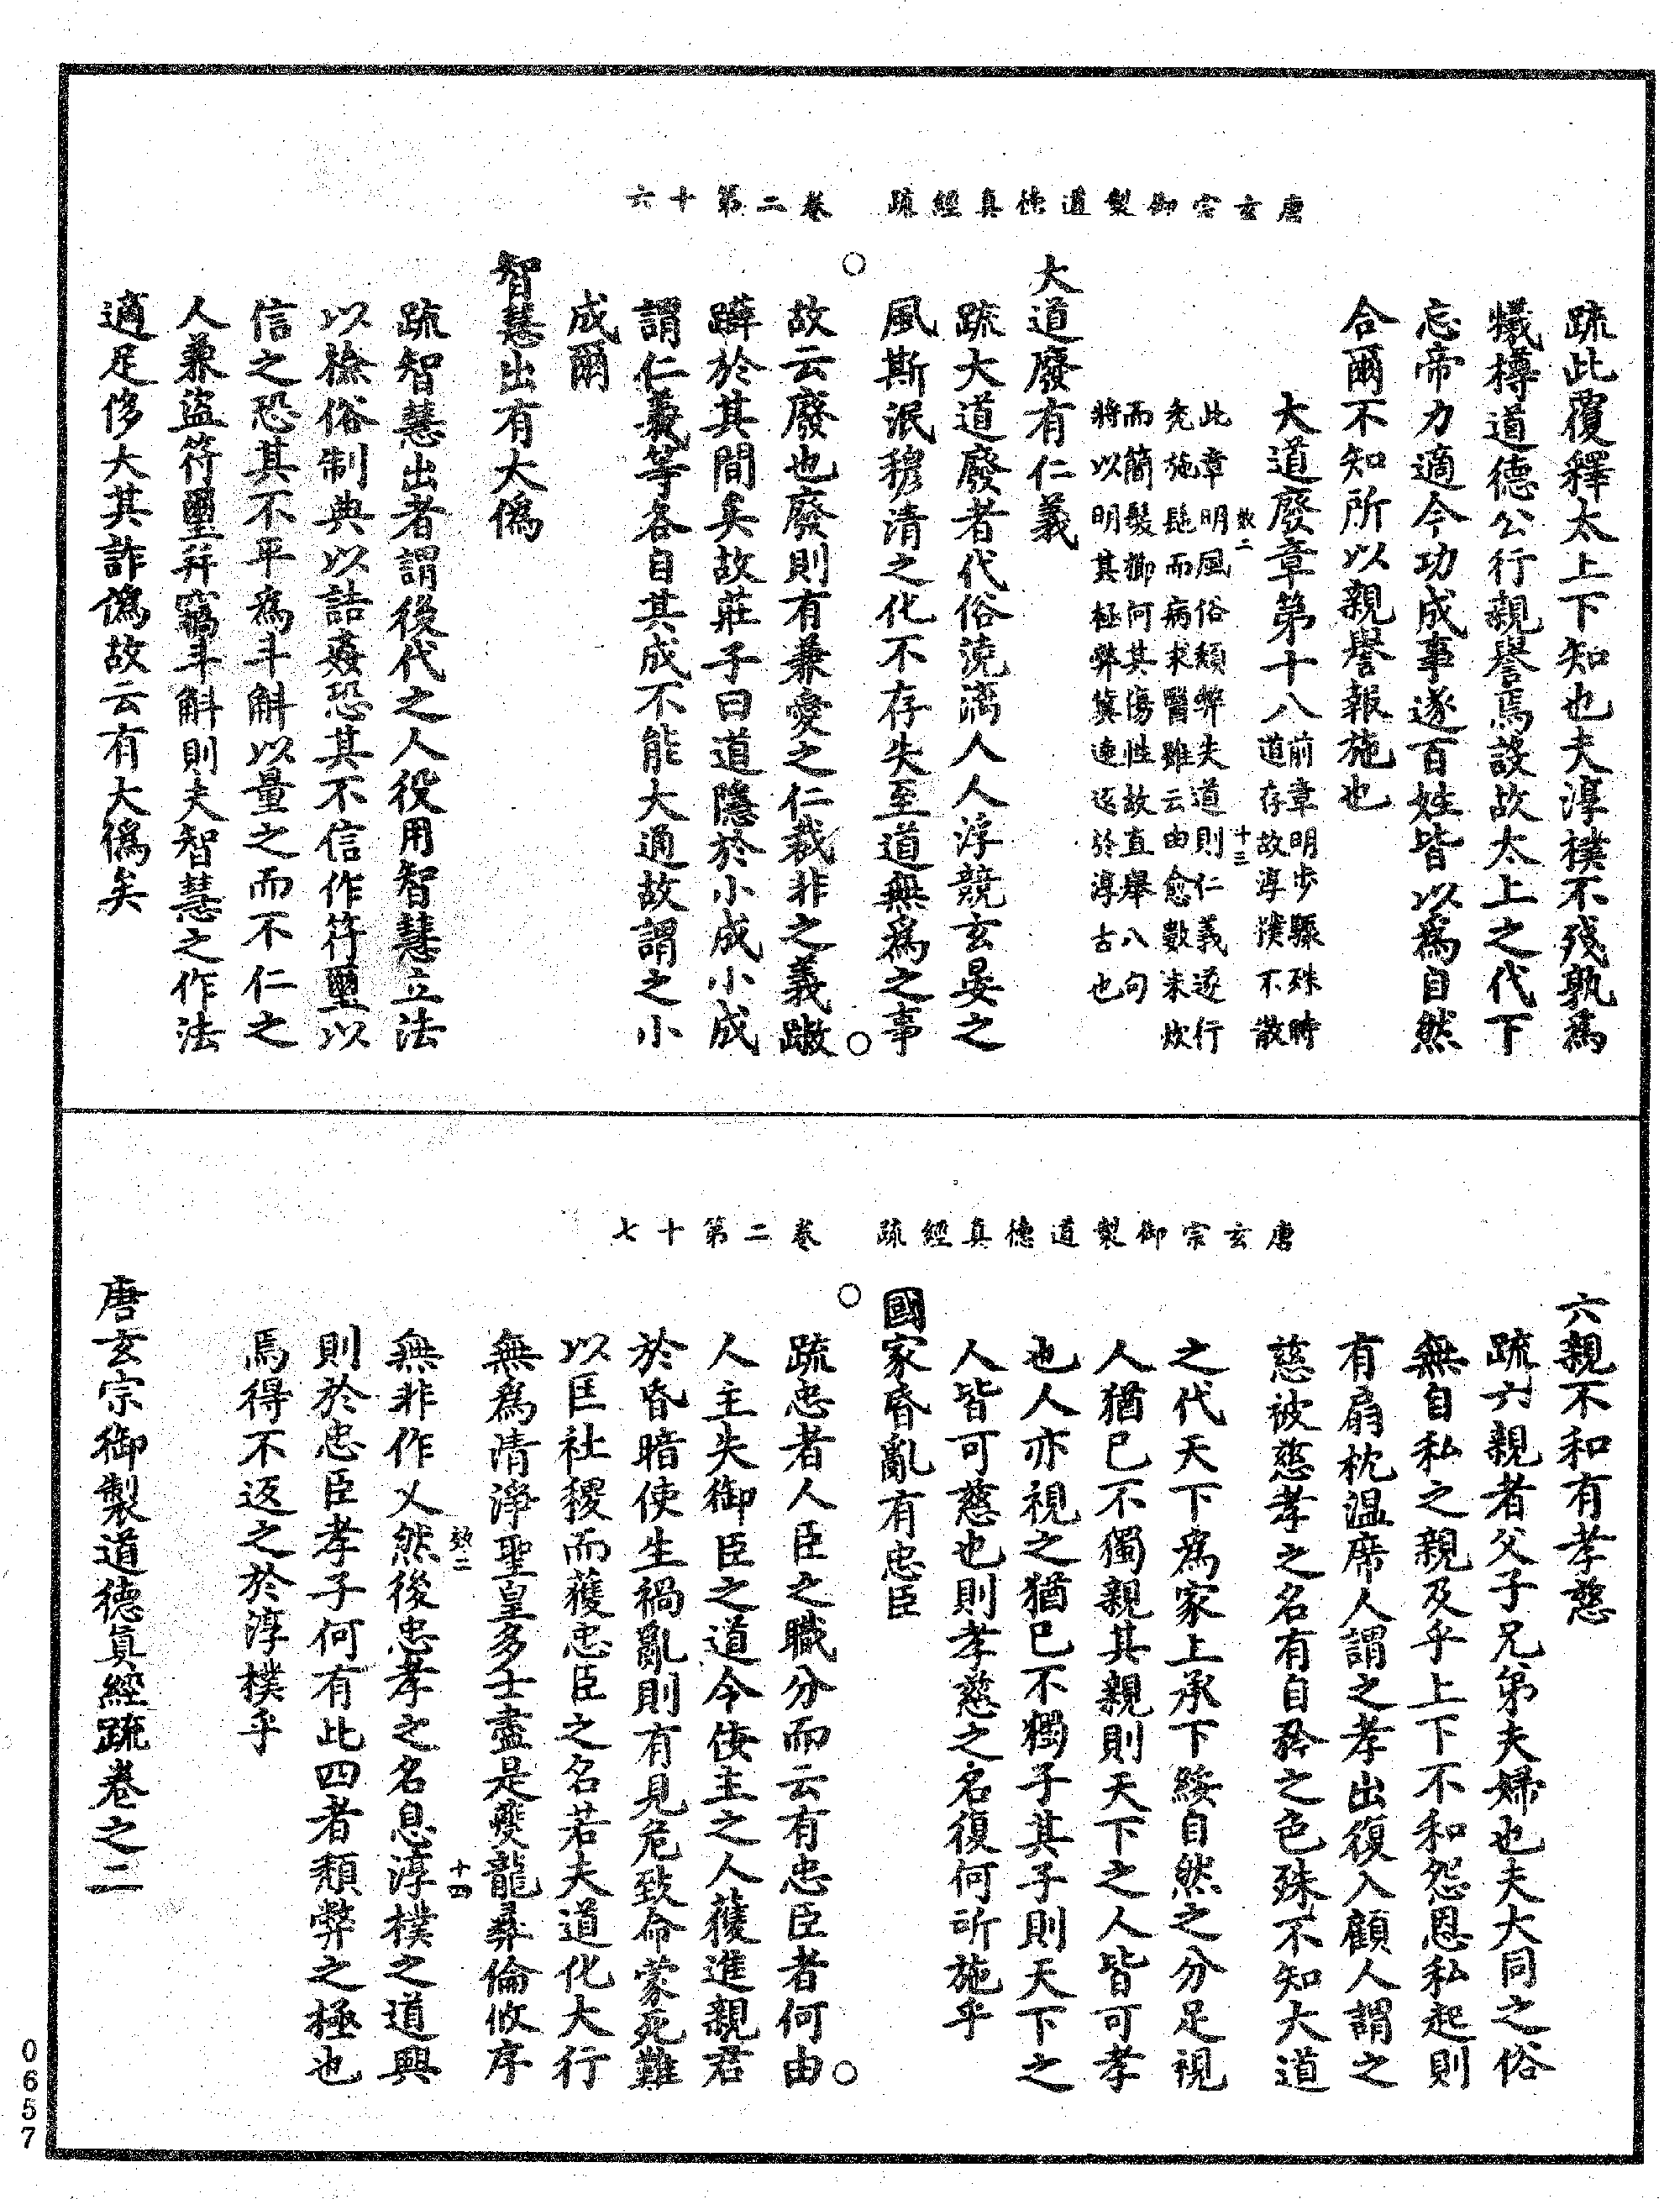 唐玄宗御製道德真經疏　卷二第十六
疏此覆釋太上下知也夫淳樸不殘孰為
犧樽道德公行親譽焉設故太上之代下
忘帝力適令功成事遂百姓皆以為自然
合爾不知所以親譽報施也
大道廢章第十八前章明步驟殊時道存故淳樸不散
效二　十三
此章明風俗頹弊失道則仁義遂行
禿施髢而病求醫雖云由愈數未炊
而簡髮擲何其傷性故直舉八句
將以明其極弊冀速返於淳古也
大道廢有仁義
疏大道廢者代俗澆漓人人浮競玄晏之
風斯泯穆清之化不存失至道無為之事
故云廢也廢則有兼愛之仁裁非之義蹩
躃於其間矣故莊子曰道隱於小成小成
謂仁義等各自其成不能大通故謂之小
成爾
智慧出有大偽
疏智慧出者謂後代之人役用智慧立法
以撿俗制典以詰姦恐其不信作符璽以
信之恐其不平為斗斛以量之而不仁之
人兼盜符璽并竊斗斛則夫智慧之作法
適足侈大其詐偽故云有大偽矣
唐玄宗御製道德真經疏　卷二第十七
六親不和有孝慈
疏六親者父子兄弟夫婦也夫大同之俗
無自私之親及乎上下不和怨恩私起則
有扇枕溫席人謂之孝出復入顧人謂之
慈被慈孝之名有自矜之色殊不知大道
之代天下為家上承下綏自然之分足視
人猶己不獨親其親則天下之人皆可孝
也人亦視之猶己不獨子其子則天下之
人皆可慈也則孝慈之名復何所施乎
國家昏亂有忠臣
疏忠者人臣之職分而云有忠臣者何由
人主失御臣之道令佞主之人獲進親君
於昏暗使生禍亂則有見危致命蒙死難
以匡社稷而獲忠臣之名若夫道化大行
無為清淨聖皇多士盡是夔龍彝倫攸序
效二　十四
無非作乂然後忠孝之名息淳樸之道興
則於忠臣孝子何有此四者頹弊之極也
焉得不返之於淳樸乎
唐玄宗御製道德真經疏卷之二
0657